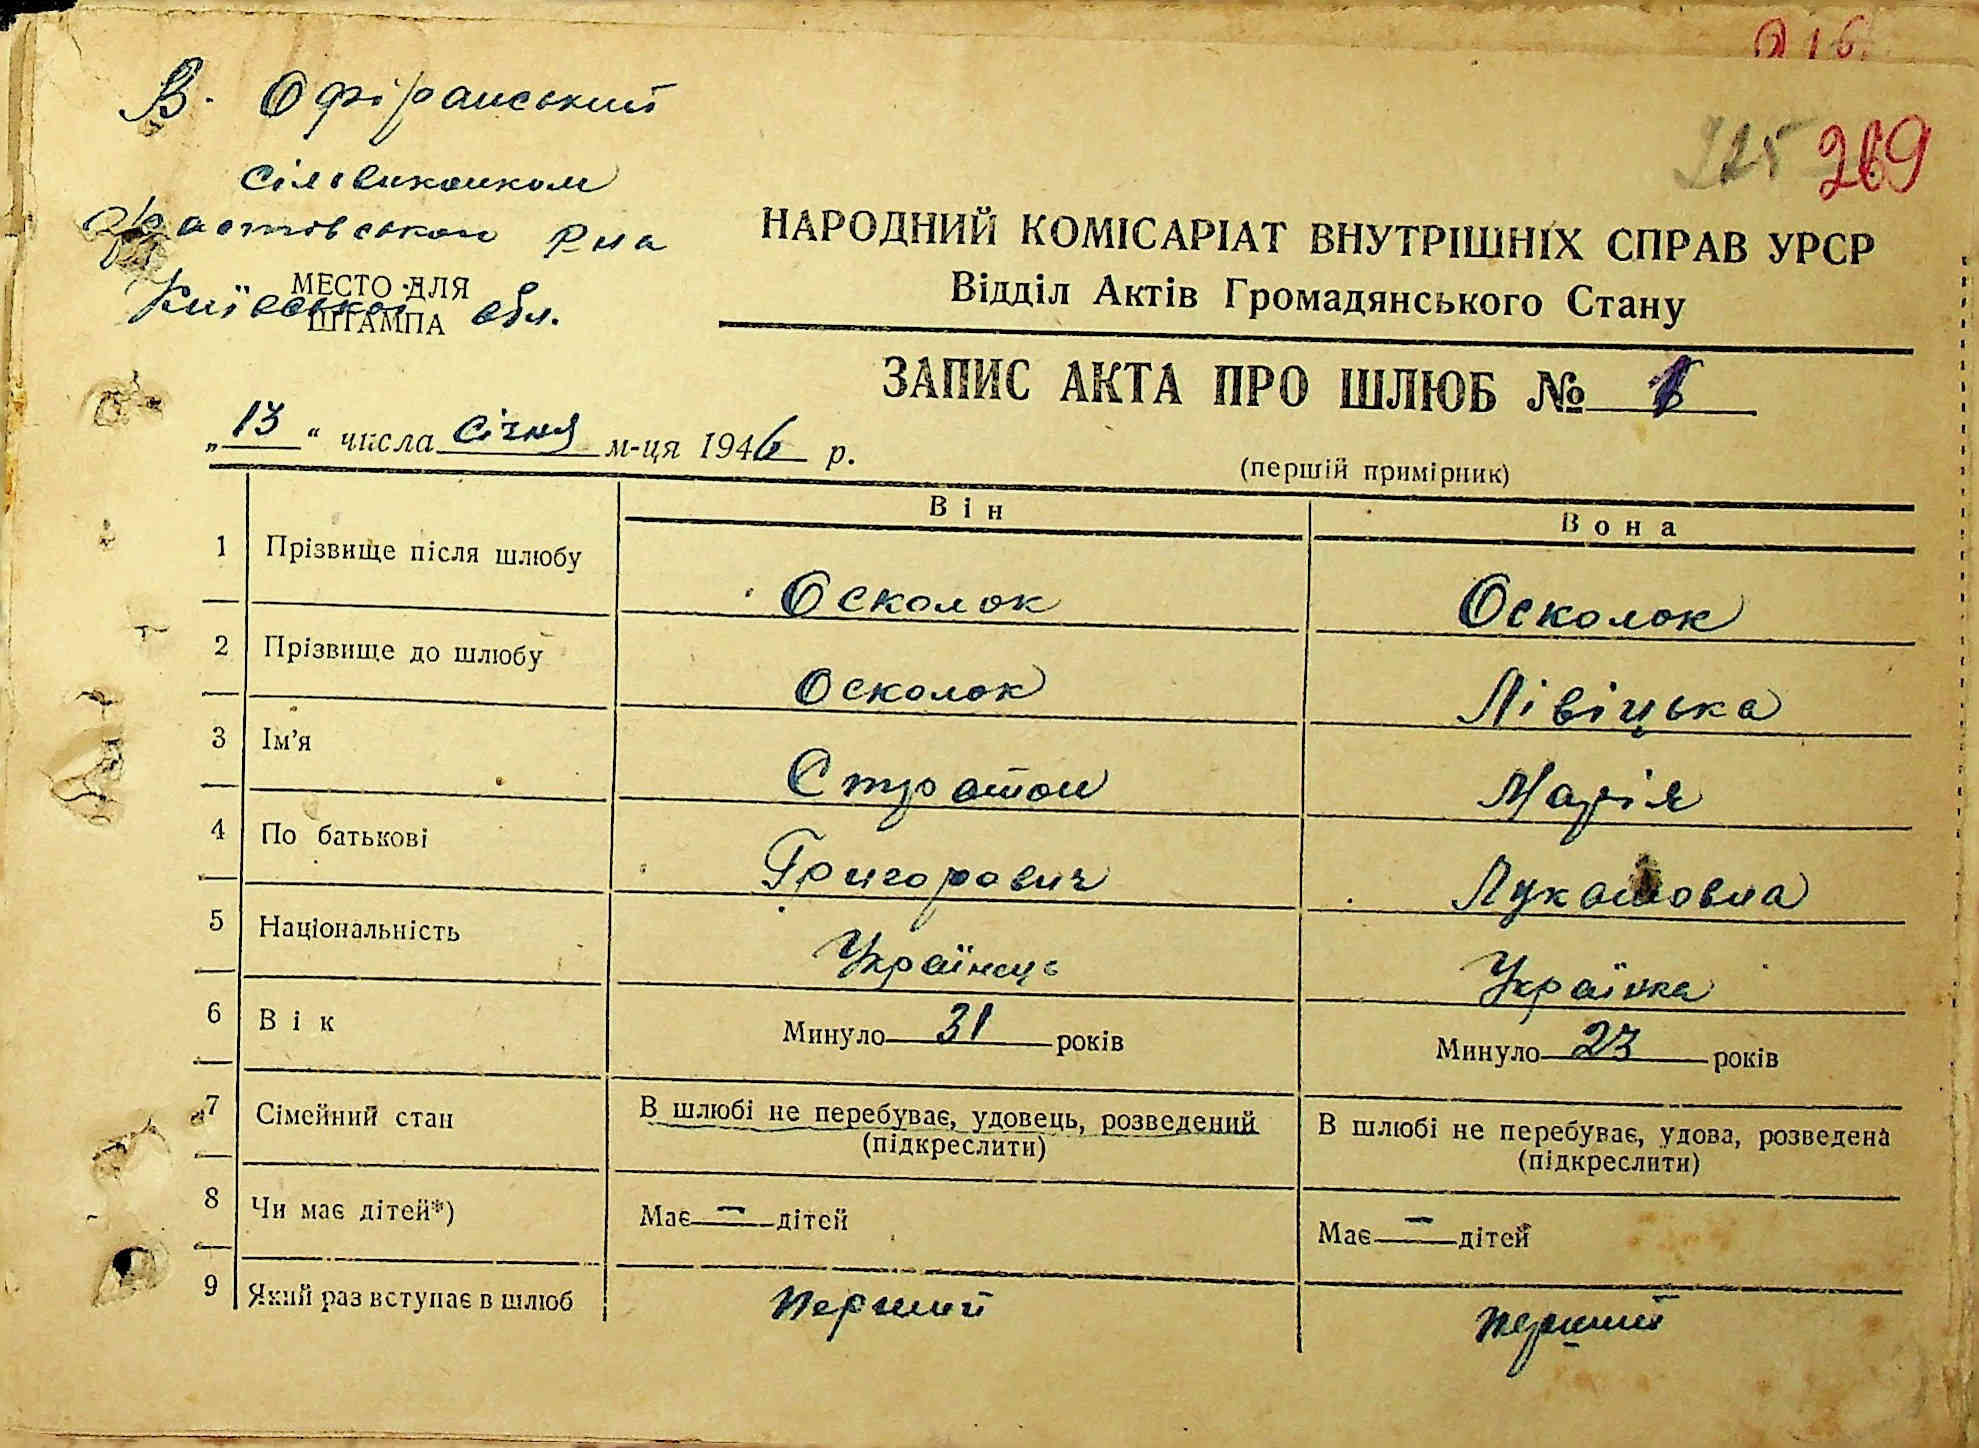 216
В. Офірнанський
сільвиконком
Фастовськой р-на
Київської обл.
МЕСТО ДЛЯ
ШТАМПА
225 269
НАРОДНИЙ КОМІСАРІАТ ВНУТРІШНІХ СПРАВ УРСР
Відділ Актів Громадянського Стану
ЗАПИС АКТА ПРО ШЛЮБ №
„13“ числа січня м-ця 1946 р.
(першій примірник)
Він Вона
1 Прізвище після шлюбу Осколок Осколок
2 Прізвище до шлюбу Осколок Лівіцька
3 Ім'я Стратон Марія
4 По батькові Григорович Лукашовна
5 Національність Українець Українка
6 Вік Минуло 31 років Минуло 23 років
7 Сімейний стан В шлюбі не перебуває, удовець, розведений В шлюбі не перебуває, удова, розведена
(підкреслити) (підкреслити)
8 Чи має дітей*) Має — дітей Має — дітей
9 Який раз вступає в шлюб перший перший